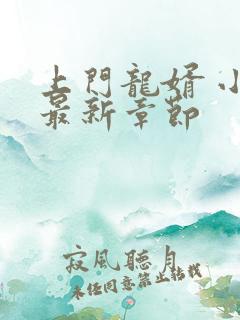 上門龍婿 小
最新章節
寂風聽月
未經同意禁止轉載